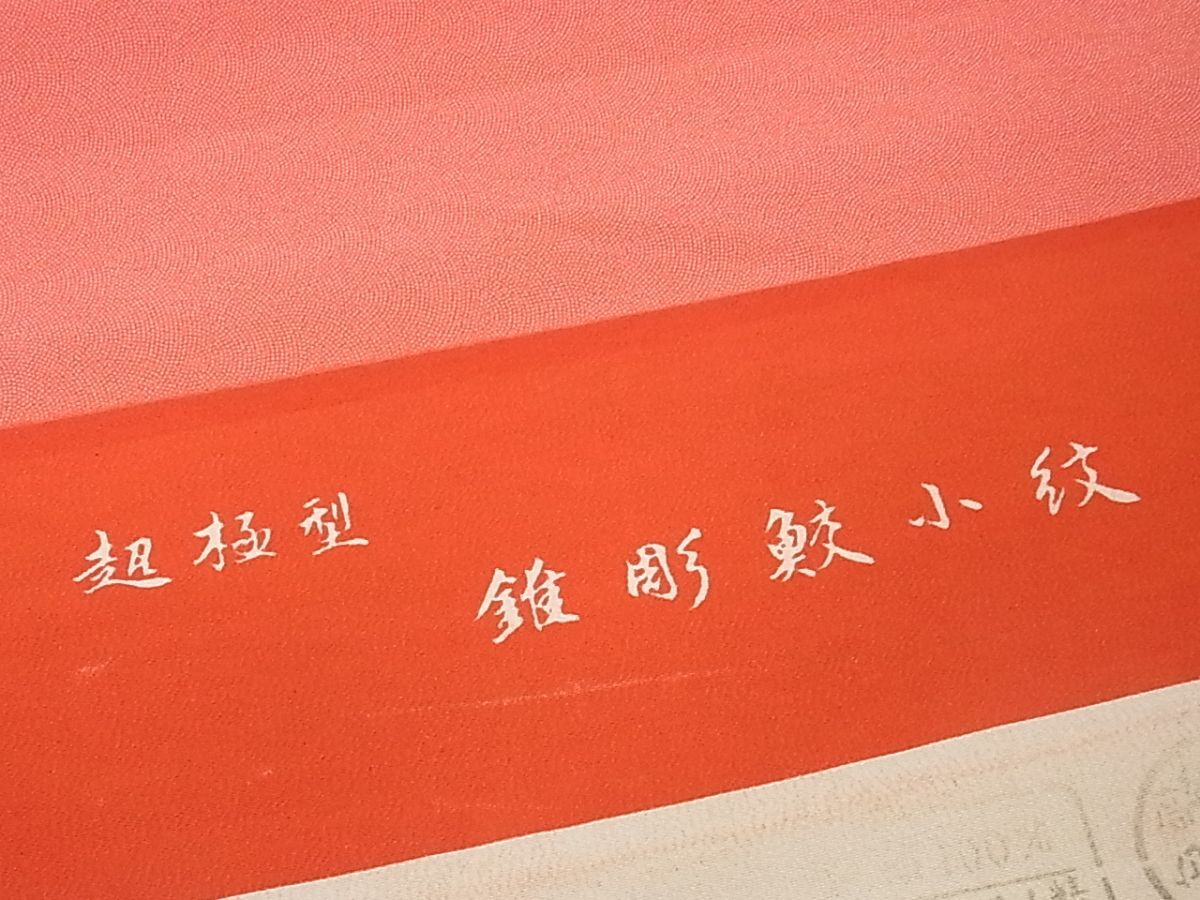 超極型 錐彫鮫小紋